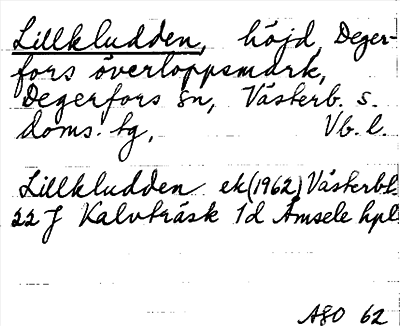 Lillkludden, höjd, Deger-
fors överloppsmark,
Degerfors sn, Västerb. s.
doms. tg, Vb. l.
Lillkludden ek (1962) Västerbl.
22 J Kalvträsk 1d Åmsele hpl
ASO 62